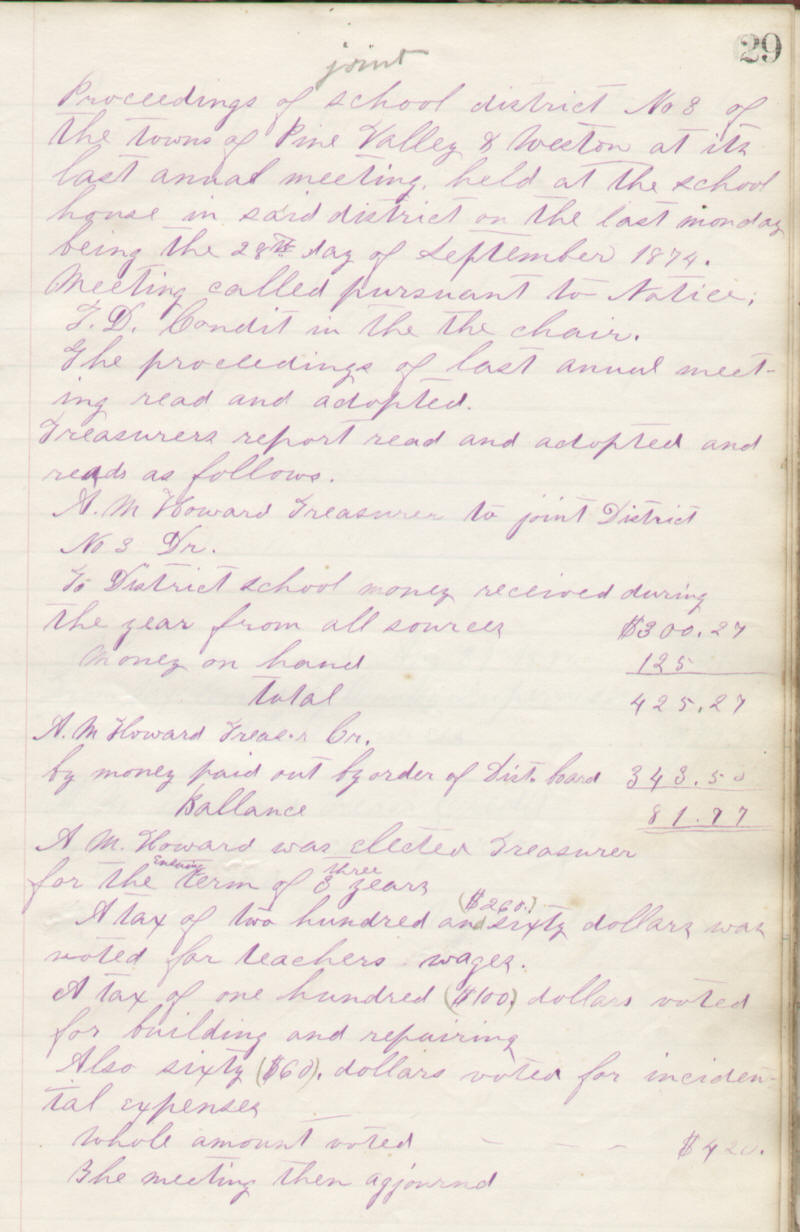 29
joint
Proceedings of school district No 8 of
the towns of Pine Valley & Weston at its
last annual meeting, held at the school
house in said district on the last monday
being the 28th day of September 1874.
Meeting called pursuant to Notice;
T. D. Condit in the the chair.
The proceedings of last annual meet-
ing read and adopted.
Treasurers report read and adopted and
reads as follows.
A. M Howard Treasurer to joint District
No 3 Dr.
To District school money received during
the year from all sources $300.27
Money on hand 125
total 425.27
A. M Howard Treasr Cr.
by money paid out by order of Dist. board 343.50
Ballance 81.77
A M. Howard was elected Treasurer
Ensuing three
for the term of 3 years
($260.)
A tax of two hundred and sixty dollars was
voted for teachers wages.
A tax of one hundred ($100) dollars voted
for building and repairing
Also sixty ($60). dollars voted for inciden-
tal expenses
Whole amount voted - - - $420.
The meeting then agjournd